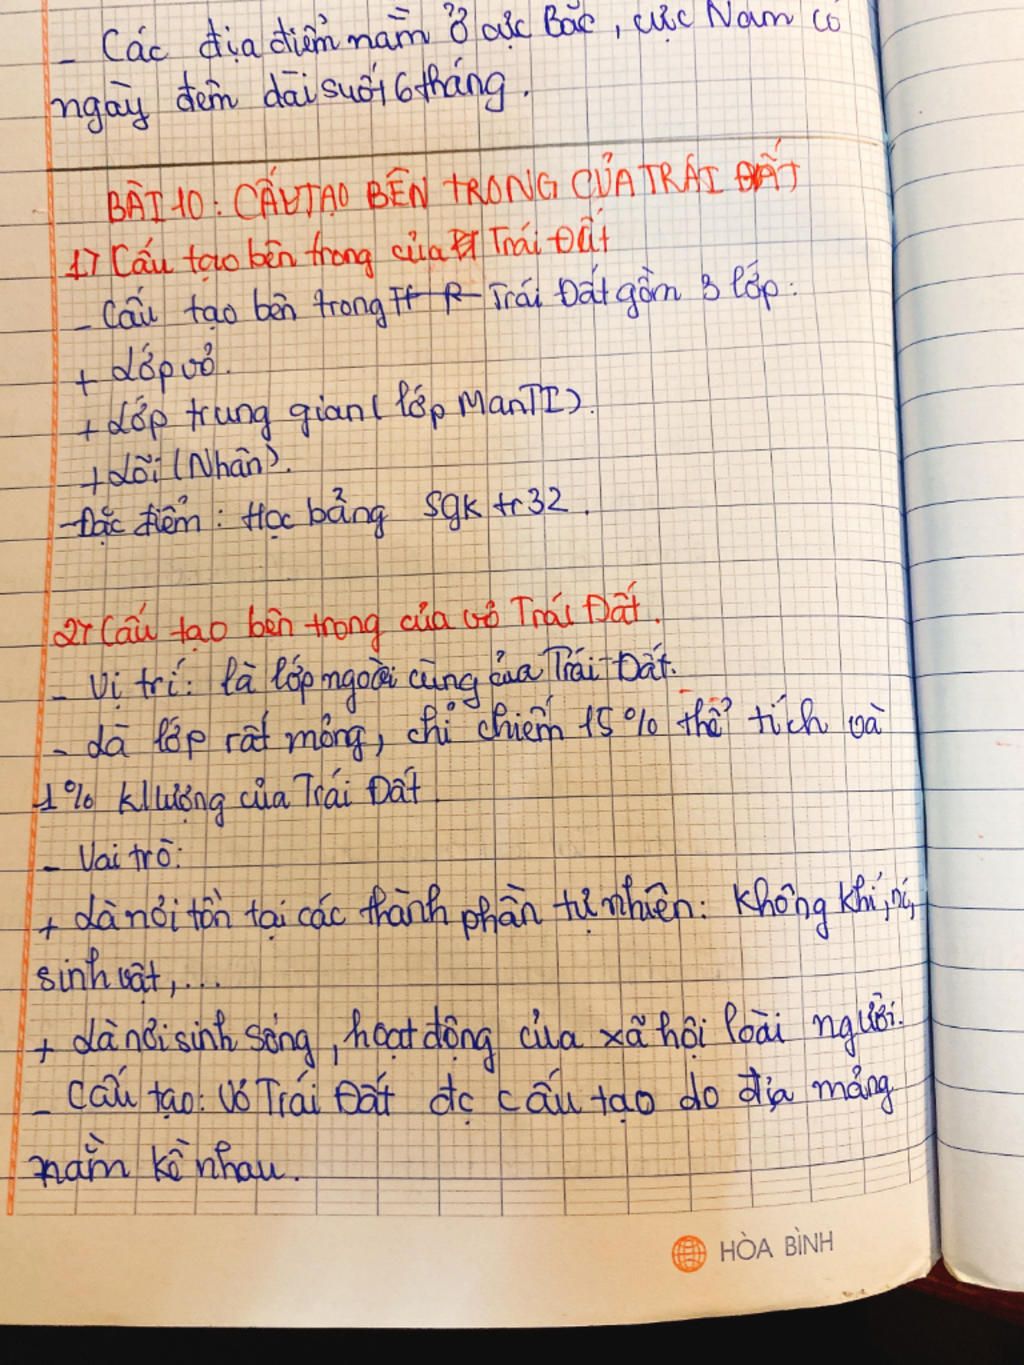 - Các địa điểm nằm ở cực Bắc, cực Nam có
ngày đêm dài suốt 6 tháng.
BÀI 10: CẤU TẠO BÊN TRONG CỦA TRÁI ĐẤT
1) Cấu tạo bên trong của Trái Đất
- Cấu tạo bên trong Trái Đất gồm 3 lớp:
+ Lớp vỏ.
+ Lớp trung gian (lớp ManTI).
+ Lõi (Nhân).
- Đặc điểm: Học bảng SGK tr 32.
2) Cấu tạo bên trong của vỏ Trái Đất.
- Vị trí: là lớp ngoài cùng của Trái Đất.
- Là lớp rất mỏng, chỉ chiếm 15% thể tích và
1% k/lượng của Trái Đất
- Vai trò:
+ Là nơi tồn tại các thành phần tự nhiên: không khí,
sinh vật,...
+ Là nơi sinh sống, hoạt động của xã hội loài người.
- Cấu tạo: Vỏ Trái Đất đc cấu tạo do địa mảng
nằm kề nhau.
HÒA BÌNH